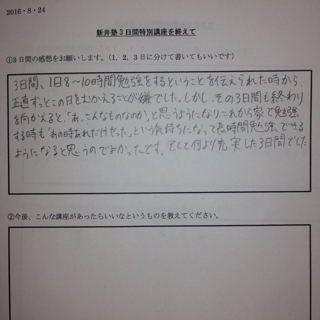 2016・8・24
新井塾3日間特別講座を終えて
①3日間の感想をお願いします。(1、2、3日に分けて書いてもいいです)
3日間、1日8〜10時間勉強をするということを伝えられた時から
正直ずっとこの日をむかえることが嫌でした。しかし、その3日間も終わり
を向かえると、「あ、こんなものなのか」と思うようになり、これから家で勉強
する時も「あの時あれだけやった」という気持ちになって長時間勉強できる
ようになると思うのでよかったです。そして何より充実した3日間でした
②今後、こんな講座があったらいいなというものを教えてください。